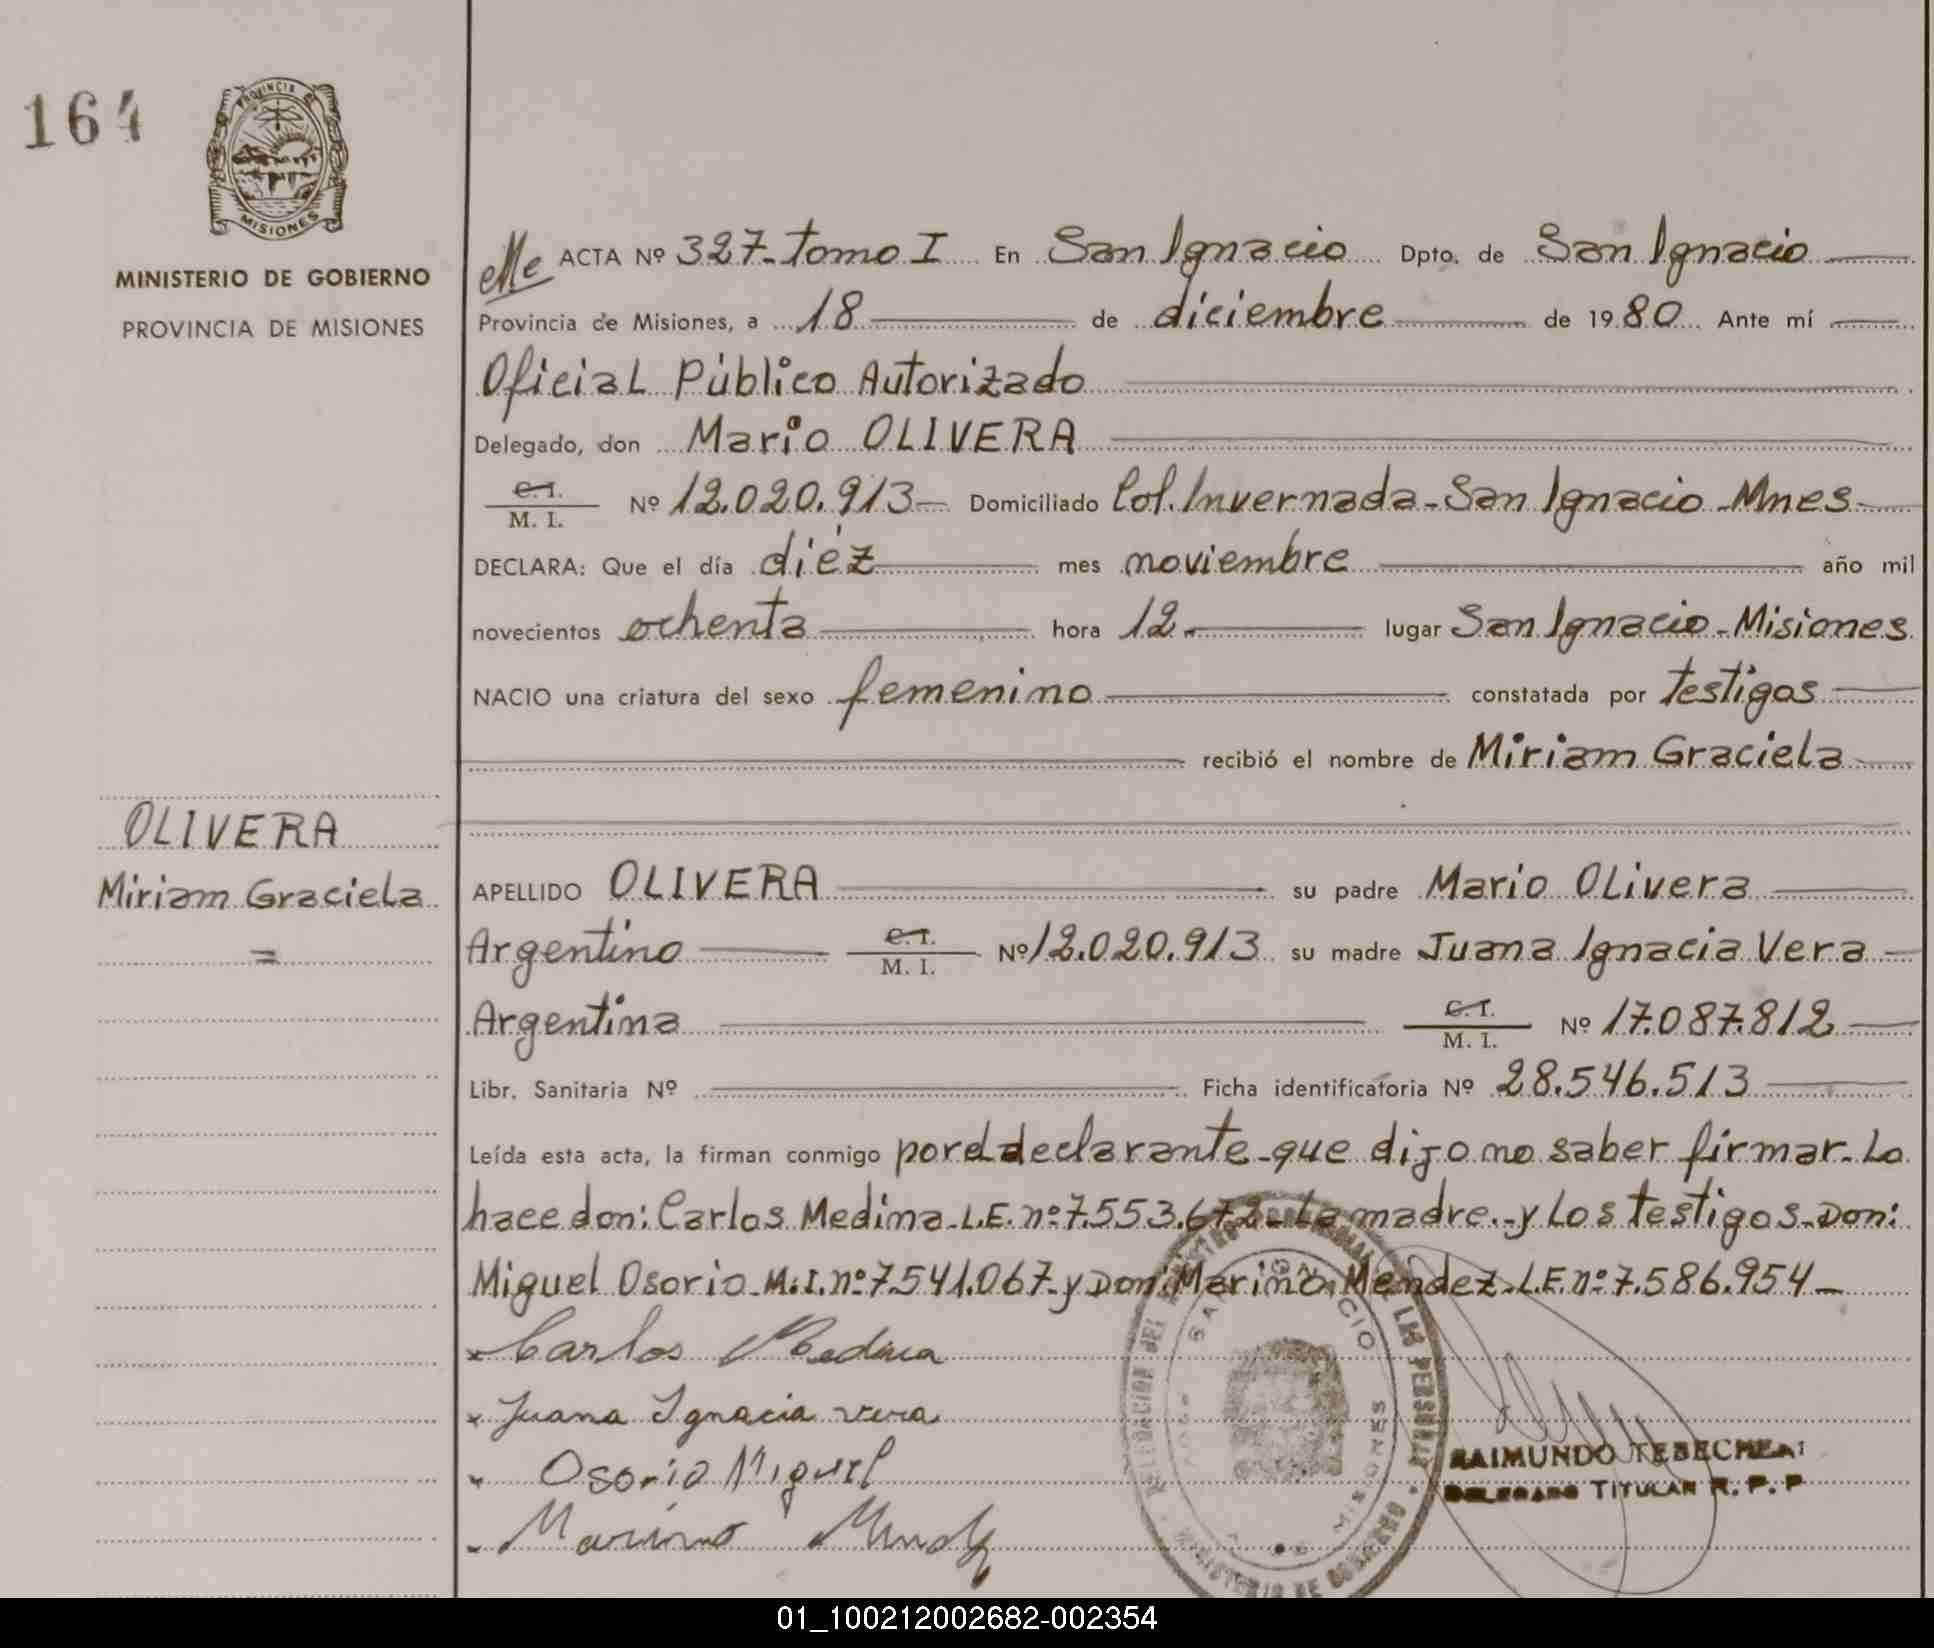 164
PROVINCIA DE
MISIONES
MINISTERIO DE GOBIERNO
PROVINCIA DE MISIONES
ACTA Nº 327-tomo I En San Ignacio Dpto. de San Ignacio
Provincia de Misiones, a 18 de diciembre de 1980 Ante mí
Oficial Público Autorizado
Delegado, don Mario OLIVERA
C. I.
M. I. Nº 12.020.913 Domiciliado Col. Invernada-San Ignacio-Mnes
DECLARA: Que el día diéz mes noviembre año mil
novecientos ochenta hora 12.- lugar San Ignacio-Misiones
NACIO una criatura del sexo femenino constatada por testigos
recibió el nombre de Miriam Graciela
OLIVERA
Miriam Graciela
=
APELLIDO OLIVERA su padre Mario OLivera
Argentino C. I.
M. I. Nº 12.020.913 su madre Juana Ignacia Vera
Argentina C. I.
M. I. Nº 17.087.812
Libr. Sanitaria Nº Ficha identificatoria Nº 28.546.513
Leída esta acta, la firman conmigo por el declarante-que dijo no saber firmar-Lo
hace don: Carlos Medina-L.E.nº:7.553.672-La madre.-y Los testigos-Don:
Miguel Osorio-M.I.nº:7.541.067-y Don:Marino Mendez-L.E.nº:7.586.954-
x Carlos Medina
x Juana Ignacia vera
x Osorio Miguel
- Marino Mendez
SAN IGNACIO
MISIONES
MINISTERIO DE GOBIERNO
RAIMUNDO TEBECHEA
DELEGADO TITULAR R. P. P
01_100212002682-002354